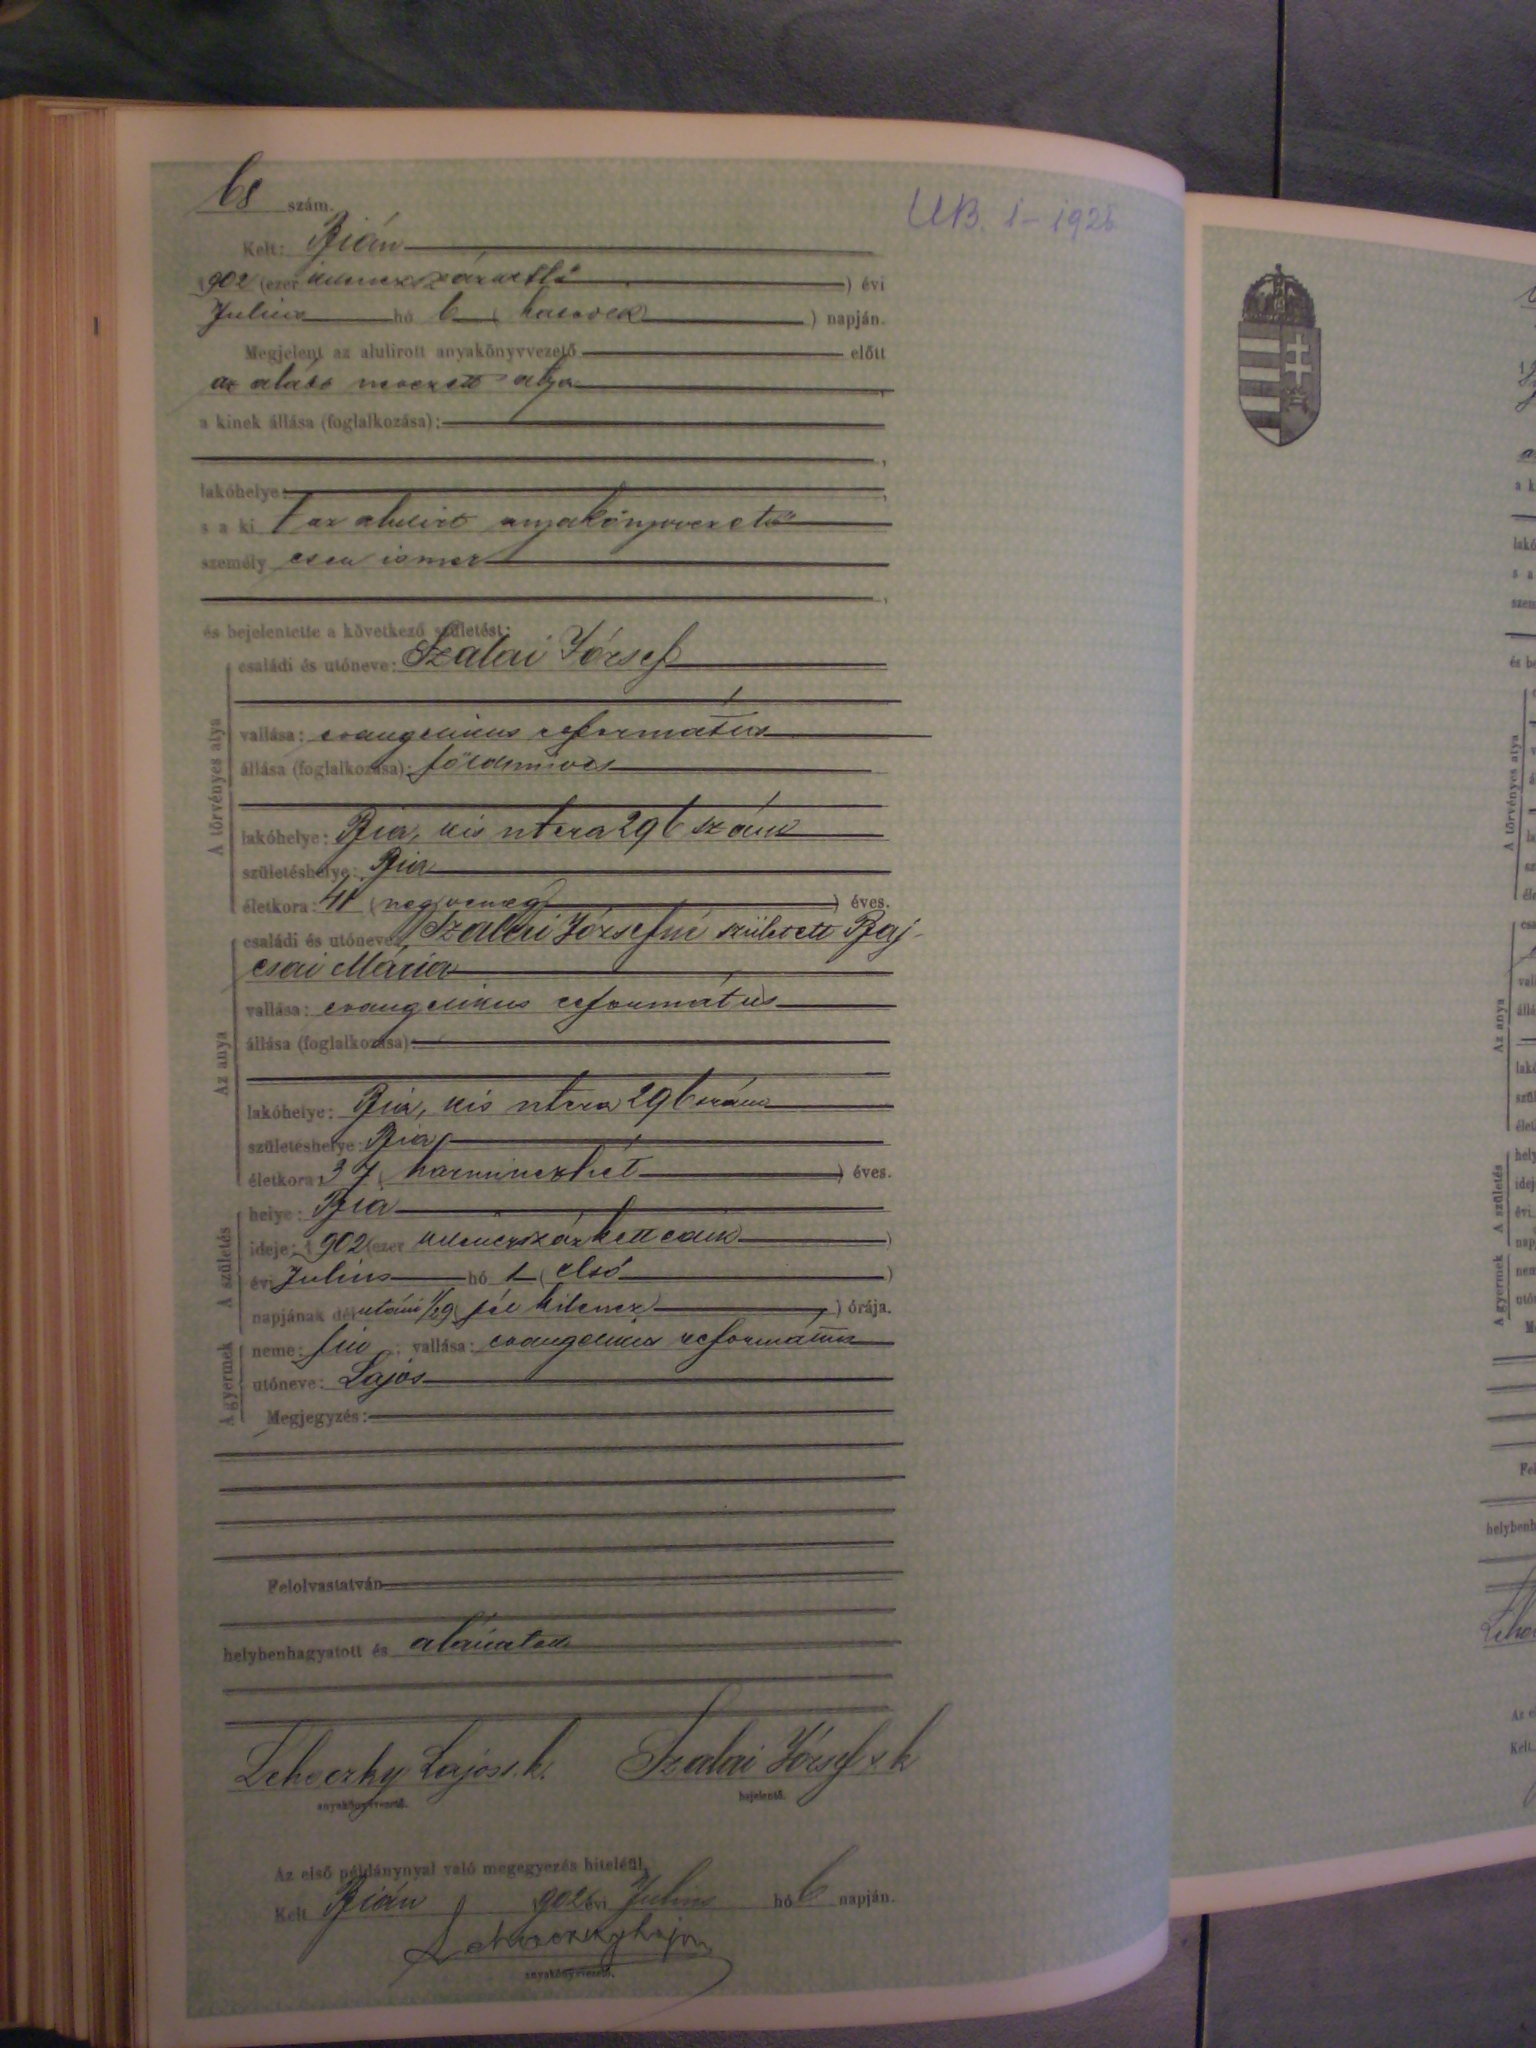 68 szám.
UB. 1-192
Kelt: Bián
1902 (ezer kilenczszázkettő) évi
Julius hó 6 (hatodik) napján.
Megjelent az alulirott anyakönyvvezető előtt
az alább nevezett atya
a kinek állása (foglalkozása):
lakóhelye:
s a ki az alulirt anyakönyvvezető
személyesen ismer
és bejelentette a következő születést:
A törvényes atya
családi és utóneve: Szalai József
vallása: evangelikus református
állása (foglalkozása): földmüves
lakóhelye: Bia, kis utcza 296 szám
születéshelye: Bia
életkora: 41 (negyvenegy) éves.
Az anya
családi és utóneve: Szalai Józsefné született Baj-
csai Mária
vallása: evangelikus református
állása (foglalkozása):
lakóhelye: Bia, kis utcza 296 szám
születéshelye: Bia
életkora: 37 (harminczhét) éves.
A születés
helye: Bia
ideje: 1902 (ezer kilenczszázkettedik)
évi Julius hó 1 (első)
napjának délutáni 1/29 (fél kilencz) órája.
A gyermek
neme: fiu ; vallása: evangelikus református
utóneve: Lajos
Megjegyzés:
Felolvastatván
helybenhagyatott és aláiratott
Lehoczky Lajos s. k. Szalai József s. k
anyakönyvvezető. bejelentő.
Az első példánynyal való megegyezés hiteléül,
Kelt Bián 1902 évi Julius hó 6 napján.
Lehoczky Lajos
anyakönyvvezető.
A törvényes atya
Az anya
A születés
A gyermek
helybenh
Kelt.